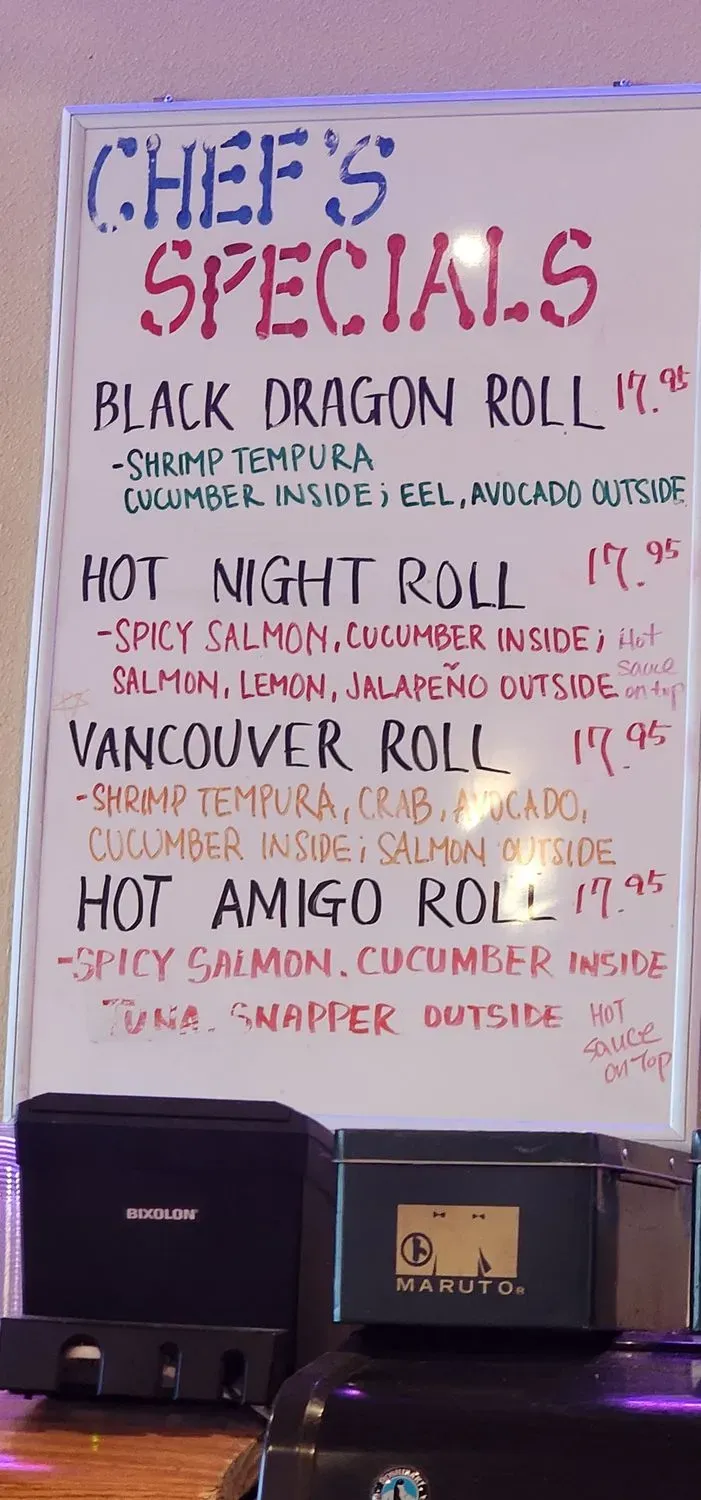 CHEF'S
SPECIALS
BLACK DRAGON ROLL 17.95
-SHRIMP TEMPURA
CUCUMBER INSIDE; EEL, AVOCADO OUTSIDE
HOT NIGHT ROLL 17.95
-SPICY SALMON, CUCUMBER INSIDE; Hot
SALMON, LEMON, JALAPEÑO OUTSIDE sauce
on top
VANCOUVER ROLL 17.95
-SHRIMP TEMPURA, CRAB, AVOCADO,
CUCUMBER INSIDE; SALMON OUTSIDE
HOT AMIGO ROLL 17.95
-SPICY SALMON. CUCUMBER INSIDE
TUNA. SNAPPER OUTSIDE HOT
sauce
on Top
BIXOLON
MARUTO®